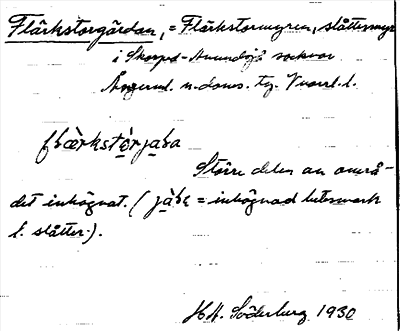 Flärkstorgårdan, = Flärkstormyren, slåttesmyr
i Skorped-Anundsjö socknar
Ångerml. n. doms. tg. Vnorrl. l.
flærkstórjaɐa
Större delen av områ-
det inhägnat. ( = inhägnad betesmark
l. slåtter.).
H.H. Söderberg 1930